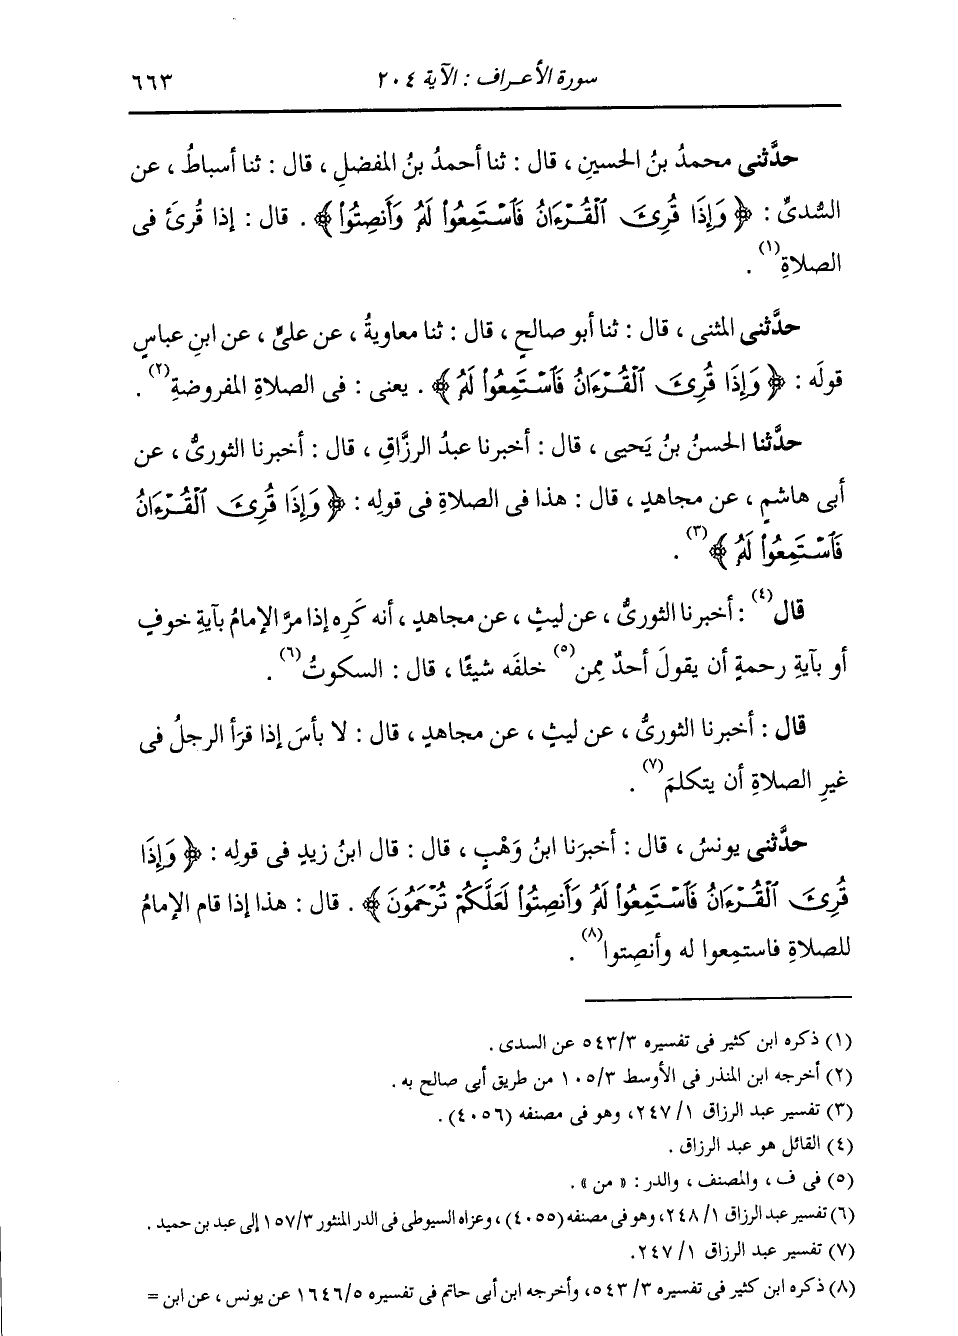 سورة الأعراف : الآية ٢٠٤ ٦٦٣
حدَّثنى محمدُ بنُ الحسينِ ، قال : ثنا أحمدُ بنُ المفضلِ ، قال : ثنا أسباطُ ، عن
السُّدىِّ : ﴿ وَإِذَا قُرِئَ الْقُرْءَانُ فَاسْتَمِعُوا لَهُ وَأَنصِتُوا ﴾ . قال : إذا قُرئَ فى
الصلاةِ(١) .
حدَّثنى المثنى ، قال : ثنا أبو صالحٍ ، قال : ثنا معاويةُ ، عن علىٍّ ، عن ابنِ عباسٍ
قولَه : ﴿ وَإِذَا قُرِئَ الْقُرْءَانُ فَاسْتَمِعُوا لَهُ ﴾ . يعنى : فى الصلاةِ المفروضةِ(٢) .
حدَّثنا الحسنُ بنُ يَحيى ، قال : أخبرنا عبدُ الرزَّاقِ ، قال : أخبرنا الثورىُّ ، عن
أبى هاشمٍ ، عن مجاهدٍ ، قال : هذا فى الصلاةِ فى قولِه : ﴿ وَإِذَا قُرِئَ الْقُرْءَانُ
فَاسْتَمِعُوا لَهُ ﴾(٣) .
قال(٤) : أخبرنا الثورىُّ ، عن ليثٍ ، عن مجاهدٍ ، أنه كَرِه إذا مرَّ الإمامُ بآيةِ خوفٍ
أو بآيةِ رحمةٍ أن يقولَ أحدٌ مِمن(٥) خلفَه شيئًا ، قال : السكوتُ(٦) .
قال : أخبرنا الثورىُّ ، عن ليثٍ ، عن مجاهدٍ ، قال : لا بأسَ إذا قرَأ الرجلُ فى
غيرِ الصلاةِ أن يتكلمَ(٧) .
حدَّثنى يونسُ ، قال : أخبرَنا ابنُ وَهْبٍ ، قال : قال ابنُ زيدٍ فى قولِه : ﴿ وَإِذَا
قُرِئَ الْقُرْءَانُ فَاسْتَمِعُوا لَهُ وَأَنصِتُوا لَعَلَّكُمْ تُرْحَمُونَ ﴾ . قال : هذا إذا قام الإمامُ
للصلاةِ فاستمِعوا له وأنصِتوا(٨) .
(١) ذكره ابن كثير فى تفسيره ٥٤٣/٣ عن السدى .
(٢) أخرجه ابن المنذر فى الأوسط ١٠٥/٣ من طريق أبى صالح به .
(٣) تفسير عبد الرزاق ١/ ٢٤٧، وهو فى مصنفه (٤٠٥٦) .
(٤) القائل هو عبد الرزاق .
(٥) فى ف ، والمصنف ، والدر : « من » .
(٦) تفسير عبد الرزاق ١/ ٢٤٨، وهو فى مصنفه (٤٠٥٥) ، وعزاه السيوطى فى الدر المنثور ١٥٧/٣ إلى عبد بن حميد .
(٧) تفسير عبد الرزاق ١/ ٢٤٧.
(٨) ذكره ابن كثير فى تفسيره ٣/ ٥٤٣، وأخرجه ابن أبى حاتم فى تفسيره ١٦٤٦/٥ عن يونس ، عن ابن =